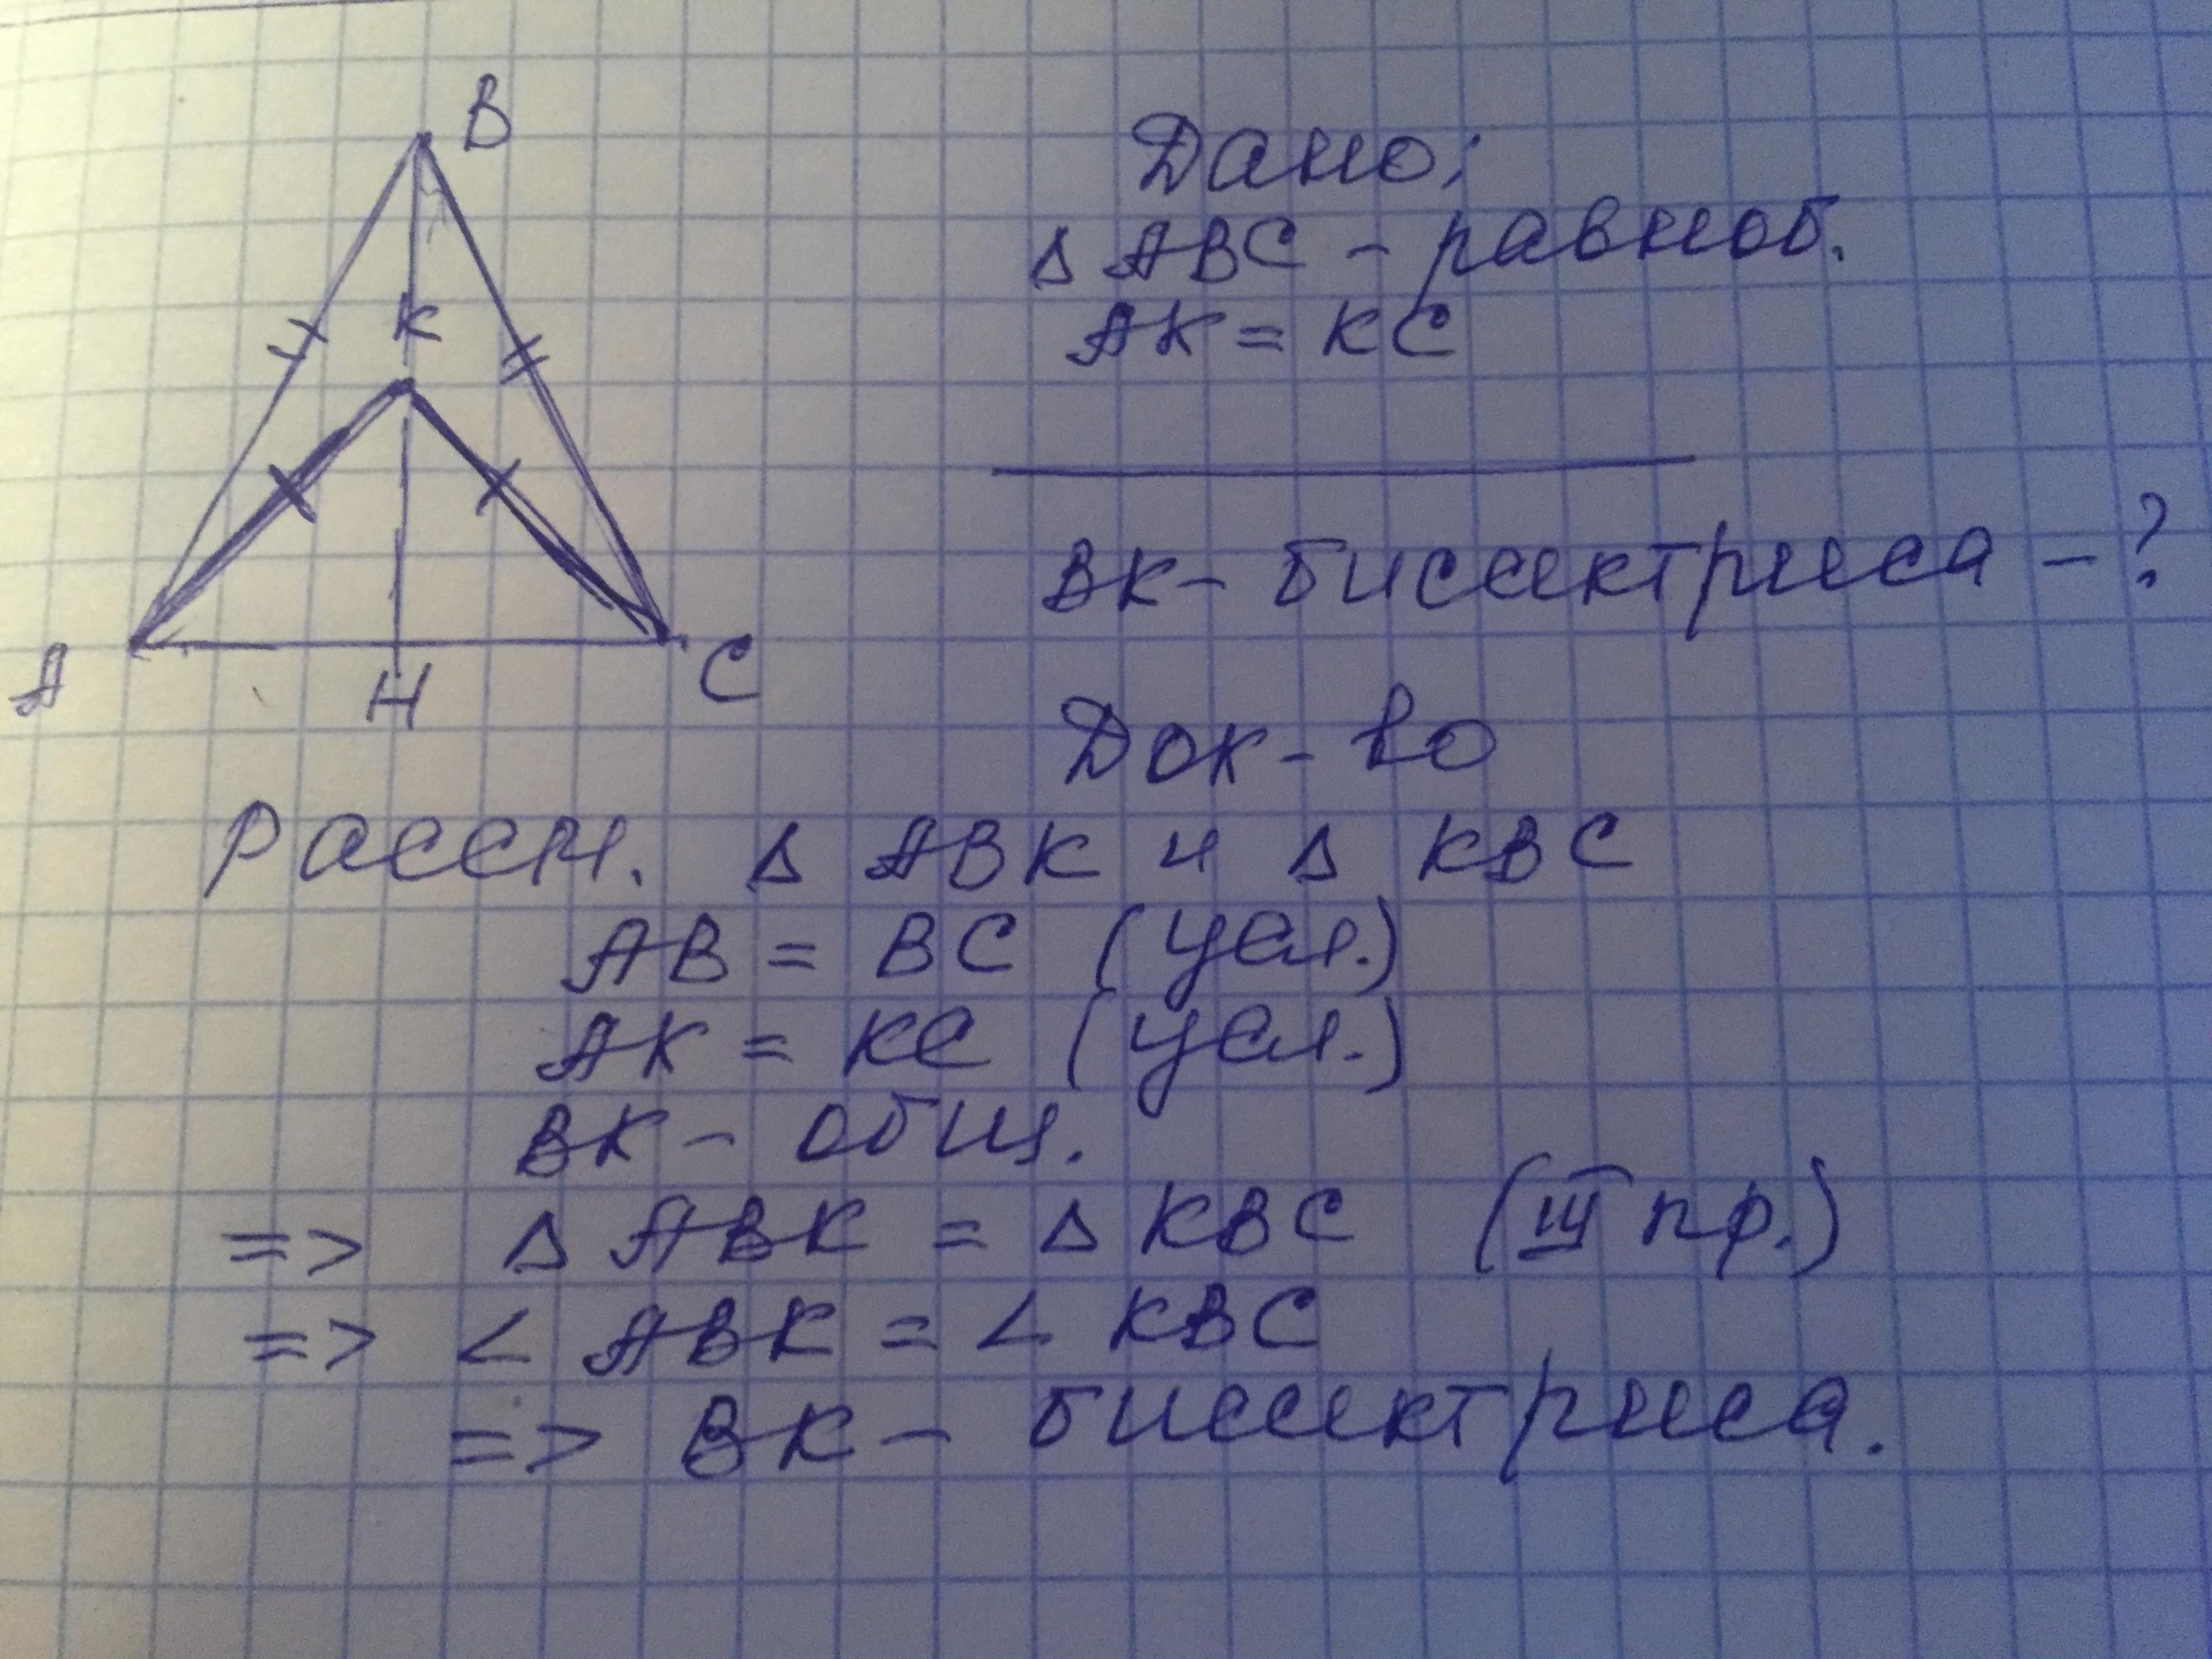 B
K
A
H
C
Дано:
Δ ABC - равноб.
AK = KC
BK - биссектриса - ?
Док-во
Рассм. Δ ABK и Δ KBC
AB = BC (усл.)
AK = KC (усл.)
BK - общ.
=> Δ ABK = Δ KBC (III пр.)
=> ∠ ABK = ∠ KBC
=> BK - биссектриса.